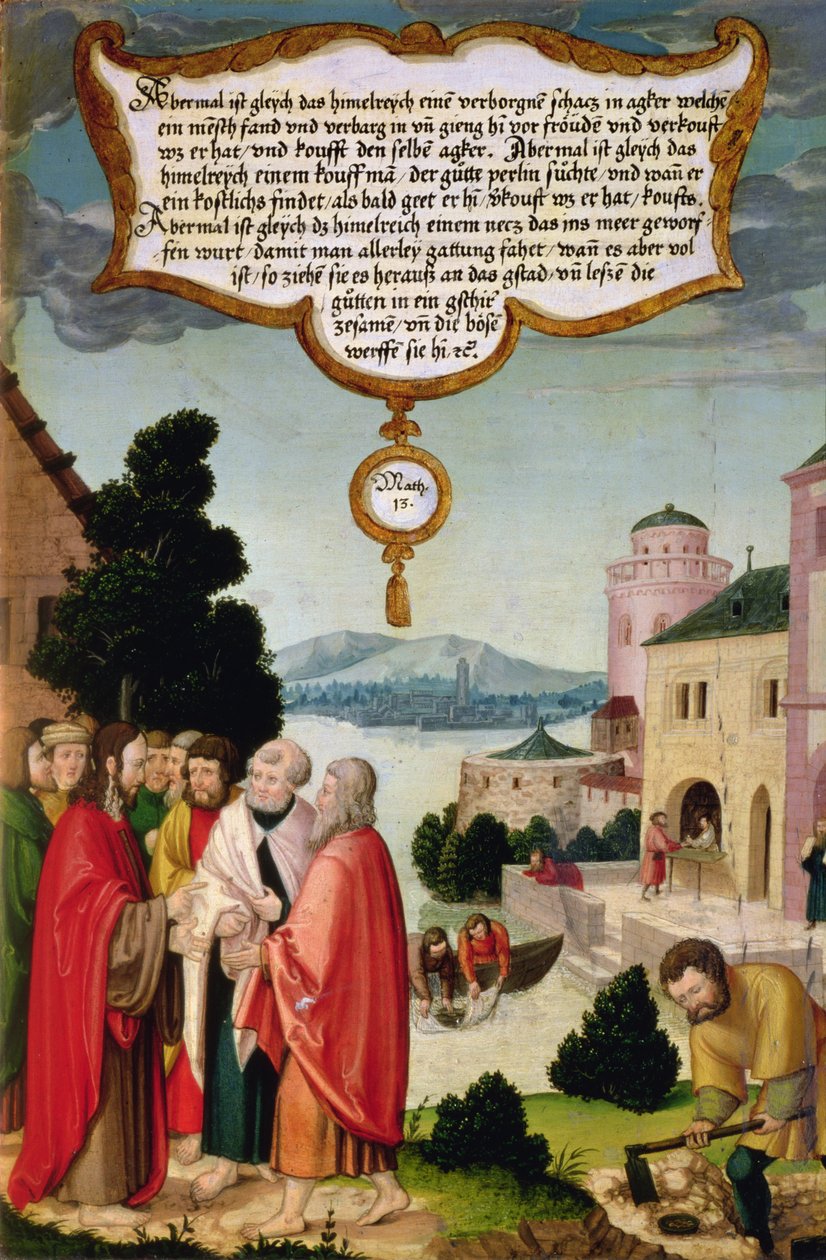 Abermal ist gleych das himelreych einē verborgnē schacz in agker welchē
ein mēsch fand vnd verbarg in vn̄ gieng hī vor frőuden vnd verkouft
wz er hat/ vnd koufft den selbē agker. Abermal ist gleych das
himelreych einem kouff mā/ der gůtte perlin sůchte/ vnd wan̄ er
ein kostlichs findet/ als bald geet er hī/ v̄kouft wz er hat/ koufts.
Abermal ist gleych dz himelreich einem necz das ins meer geworf-
-fen wurt/ damit man allerley gattung fahet/ wan̄ es aber vol
ist/ so ziehē sie es herauß an das gstad/ vn̄ leszē die
gůtten in ein gschir
zesamē/ vn̄ die bősē
werffē sie hī/ ꝛc̄.
Math.
13.